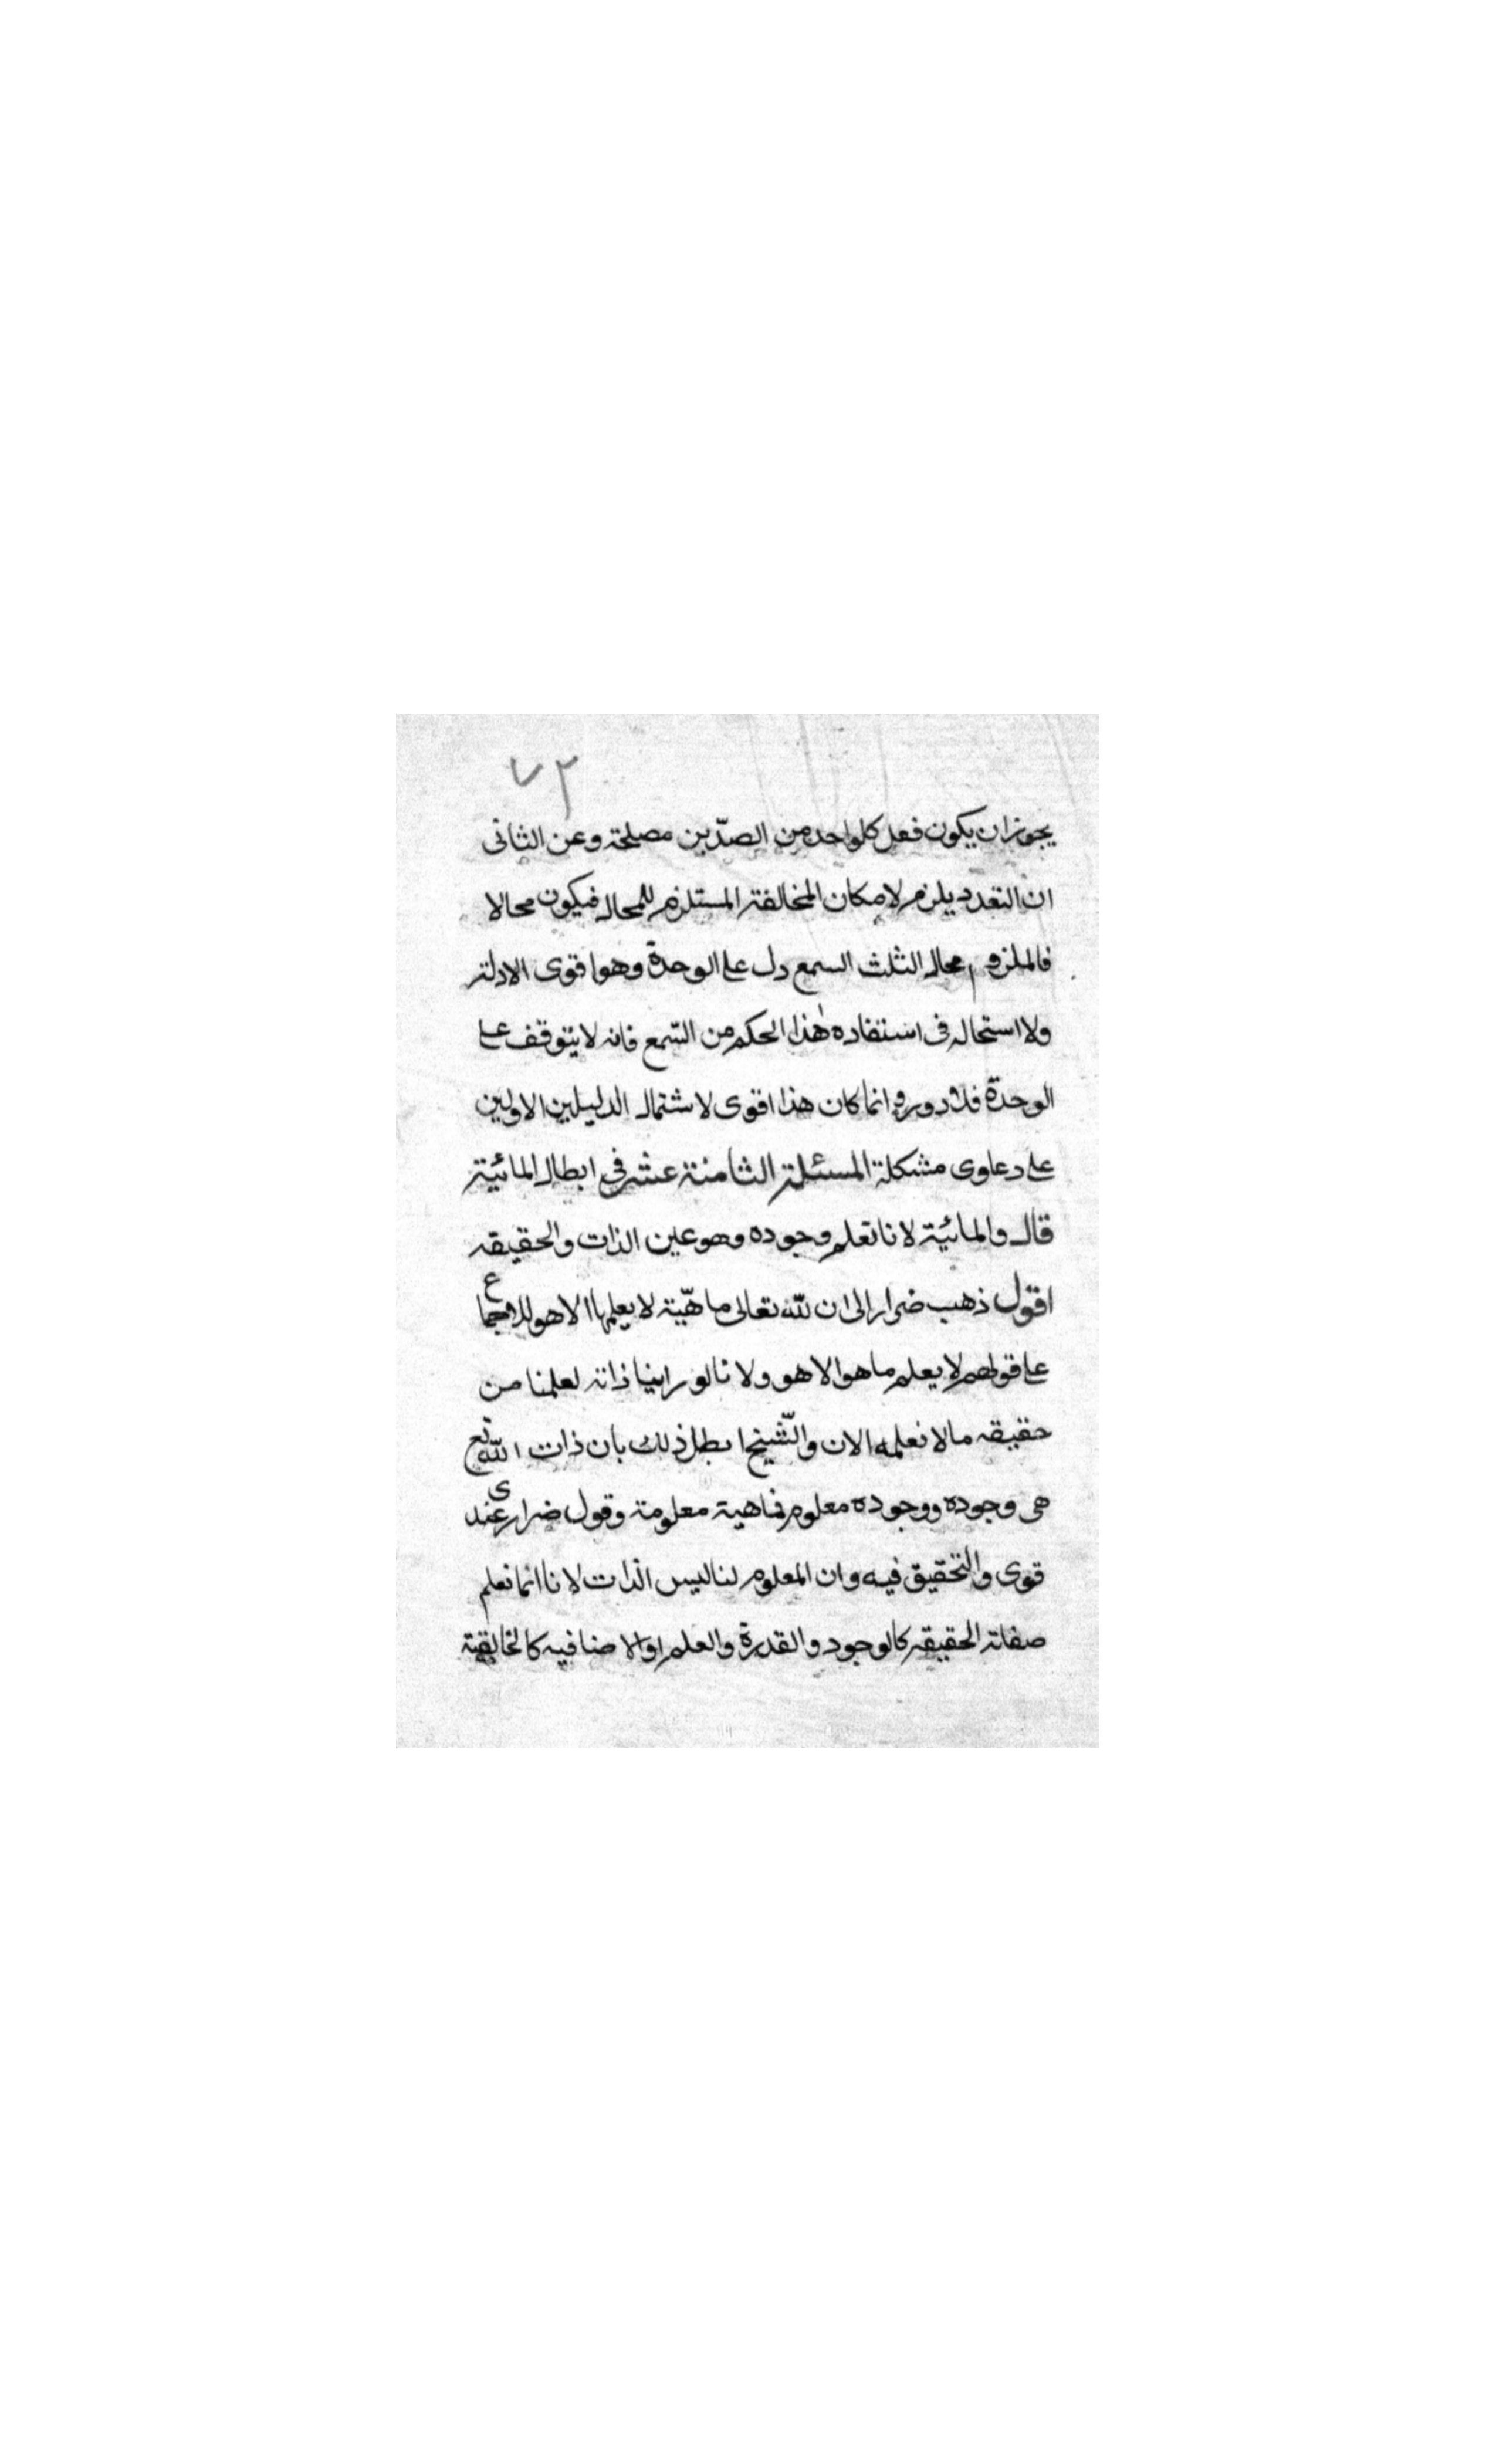 ٧٢
يجوز ان يكون فعل كلواحد من الضدّين مصلحة وعن الثانى
ان التعدد يلزم لامكان المخالفة المستلزم للمحال فيكون محالا
فالملزوم محال الثلث السمع دل على الوحدة وهو اقوى الادلة
ولا استحاله فى استفاده هٰذا الحكم من السّمع فانه لا يتوقف على
الوحدة فلا دور وانما كان هذا اقوى لاشتمال الدليلين الاولين
على دعاوى مشكلة المسئلة الثامنة عشر في ابطال المائية
قال والمائية لانا نعلم وجوده وهو عين الذات والحقيقه
اقول ذهب ضرار الى ان لله تعالى ماهيّة لا يعلمها الا هو للاجماع
على قولهم لا يعلم ما هو الا هو ولانا لو راينا ذاته لعلمنا من
حقيقه ما لا نعلمه الان والشّيخ ابطل ذلك بان ذات الله تع
هى وجوده ووجوده معلوم فماهية معلومة وقول ضرار عندى
قوى والتحقيق فيه وان المعلوم لنا ليس الذات لانا انما نعلم
صفاته الحقيقه كالوجود والقدرة والعلم او الاضافيه كالخالقية